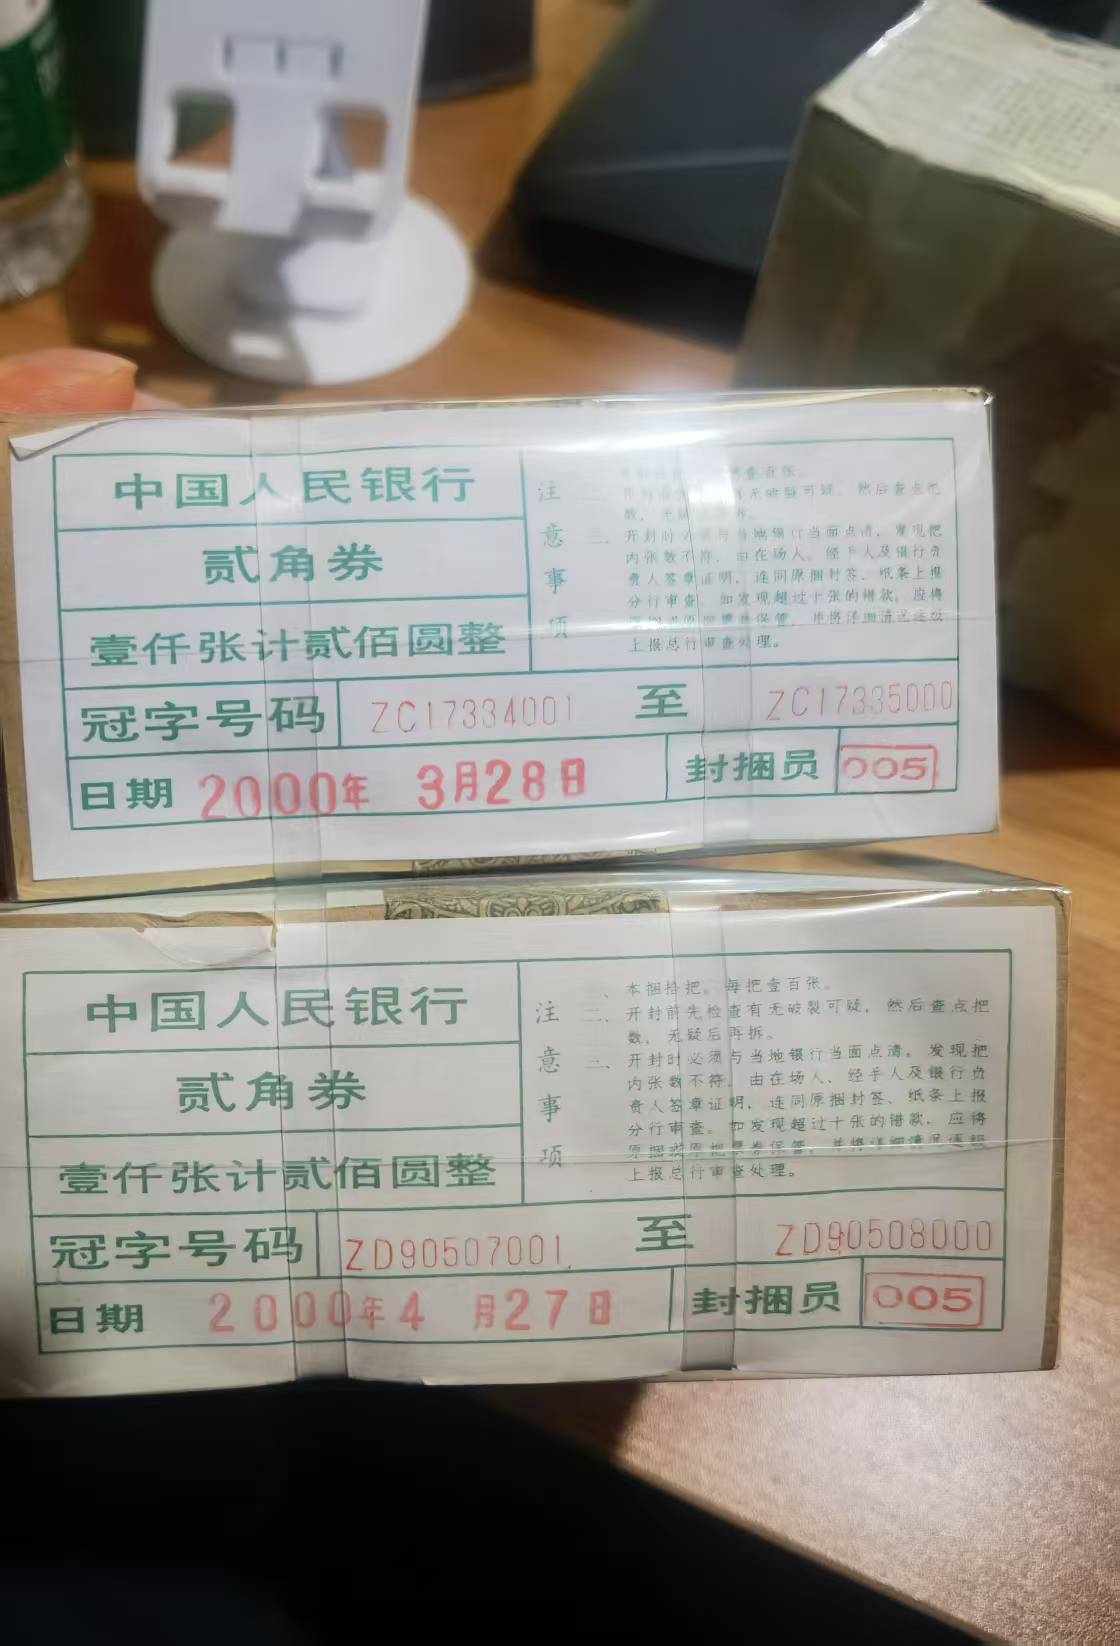 中国人民银行
贰角券
壹仟张计贰佰圆整
注意事项
壹百张。
无破裂可疑，然后查点把
三、开封时必须与当地银行当面点清，发现把
内张数不符，由在场人、经手人及银行负
责人签章证明，连同原捆封签、纸条上报
分行审查。如发现超过十张的错款，应将
原捆或原把票券保管，并将详细情况逐级
上报总行审查处理。
冠字号码 ZC17334001 至 ZC17335000
日期 2000年 3月28日 封捆员 005
中国人民银行
贰角券
壹仟张计贰佰圆整
注意事项
、本捆拾把。每把壹百张。
二、开封前先检查有无破裂可疑，然后查点把
数，无疑后再拆。
三、开封时必须与当地银行当面点清，发现把
内张数不符，由在场人、经手人及银行负
责人签章证明，连同原捆封签、纸条上报
分行审查。如发现超过十张的错款，应将
原捆或原把票券保管，并将详细情况逐级
上报总行审查处理。
冠字号码 ZD90507001 至 ZD90508000
日期 2000年4 月27日 封捆员 005